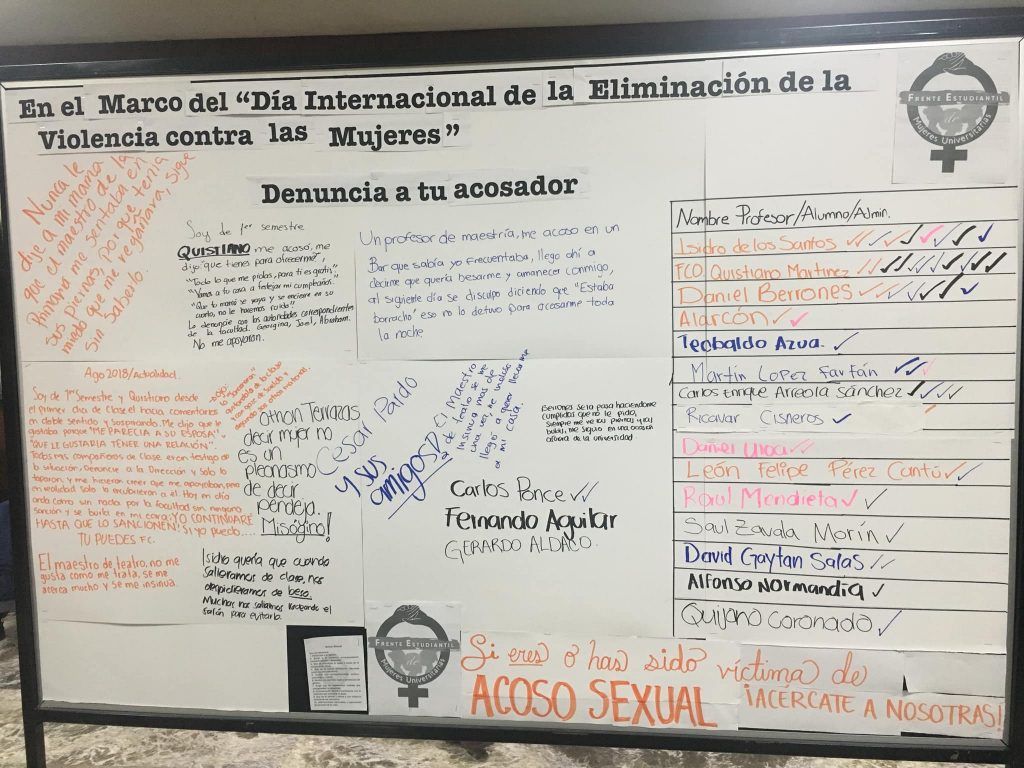 En el Marco del "Día Internacional de la Eliminación de la
Violencia contra las Mujeres"
FRENTE ESTUDIANTIL
de
Mujeres Universitarias
Denuncia a tu acosador
Nunca le
dije a mi mamá
que el maestro de la
Primaria me sentaba en
sus piernas, por que tenía
miedo que me regañara, sigue
sin saberlo.
Soy de 1er semestre
QUISTIANO me acosó, me
dijo "que tienes para ofrecerme",
"Todo lo que me pidas, para ti es gratis",
"Vamos a tu casa a festejar mi cumpleaños."
"Que tu mamá se vaya y se encierre en su
cuarto, no le haremos ruido"
Lo denuncie con las autoridades correspondientes
de la facultad. Georgina, Joel, Abraham.
No me apoyaron.
Un profesor de maestría, me acoso en un
Bar que sabía yo frecuentaba, llego ahí a
decirme que quería besarme y amanecer conmigo,
al siguiente día se disculpo diciendo que "Estaba
borracho" eso no lo detuvo para acosarme toda
la noche.
Ago 2018/Actualidad.
Soy de 1er Semestre y Quistiano desde
el primer día de Clase él hacía comentarios
en doble sentido y Suspirando. Me dijo que le
gustaba porque "ME PARECIA A SU ESPOSA"
"QUE LE GUSTARIA TENER UNA RELACIÓN".
Todos mis compañeros de Clase eran testigo de
la situación, Denuncie a la Dirección y Solo lo
taparon, y me hicieron creer que me apoyaban, pero
en realidad solo lo encubrieron a él. Hoy en día
anda como sin nada por la facultad sin ninguna
sanción y se burla en mi cara. YO CONTINUARE
HASTA QUE LO SANCIONEN! Si yo puedo....
TU PUEDES F.C.
Othon Terrazas
decir mujer no
es un
pleonasmo
de decir
pendeja.
Misógino!
Cessar Pardo
y sus
amigos
El Maestro
de teatro se me
insinua mas de
una vez, me
llegó a querer llevarme
a mi casa.
Berrones se la pasa haciendome
cumplidos que no le pido,
siempre me ve las piernas y las
bubis, me siguio en una ocasión
afuera de la universidad
Carlos Ponce ✓✓
Fernando Aguilar
GERARDO ALDACO.
El maestro de teatro, no me
gusta como me trata, se me
acerca mucho y se me insinúa.
Isidro quería que cuando
salieramos de clase, nos
despidieramos de beso.
Muchas nos salíamos
salón para evitarlo.
Nombre Profesor/Alumno/Admin.
Isidro de los Santos ✓✓✓✓✓✓✓✓
FCO. Quistiano Martinez ✓✓✓✓✓✓✓✓✓
Daniel Berrones ✓✓✓✓✓✓✓
Alarcón ✓✓
Teobaldo Azua. ✓
Martín Lopez Farfán ✓✓✓
Carlos Enrique Arreola Sánchez ✓✓✓✓
Ricavar Cisneros ✓
Daniel Ulloa ✓✓
León Felipe Pérez Cantú ✓✓✓
Raoul Mendieta ✓✓
Saul Zavala Morín ✓
David Gaytan Salas ✓✓
Alfonso Normandia ✓
Quijano Coronado ✓
FRENTE ESTUDIANTIL
de
Mujeres Universitarias
Si eres o has sido víctima de
ACOSO SEXUAL ¡ACÉRCATE A NOSOTRAS!